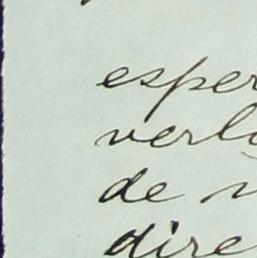 esper
verl
de
dire